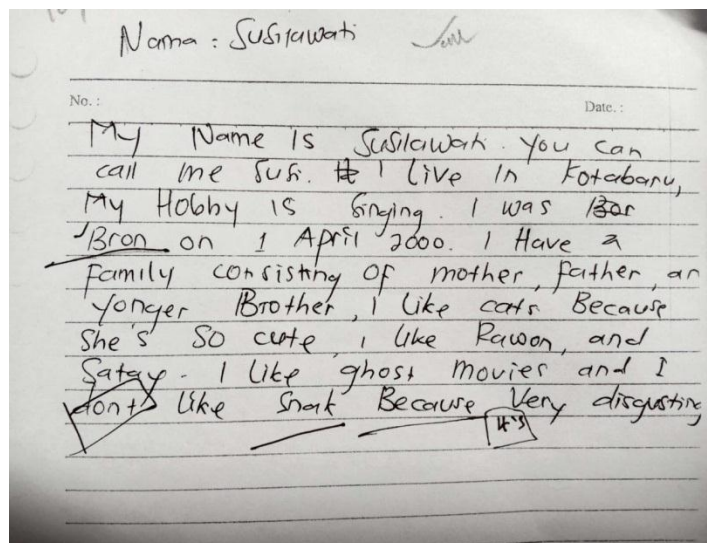 Nama : Susilawati
No. :
Date. :
My Name is Susilawati. You can
call me Susi. I live in Kotabaru,
My Hobby is Singing. I was Bor
Bron on 1 April 2000. I Have a
Family consisting of mother, father, an
yonger Brother, I like cats Because
She's so cute, i like Rawon, and
Satay. I like ghost movies and I
dont like Snak Because Very disgusting
it's